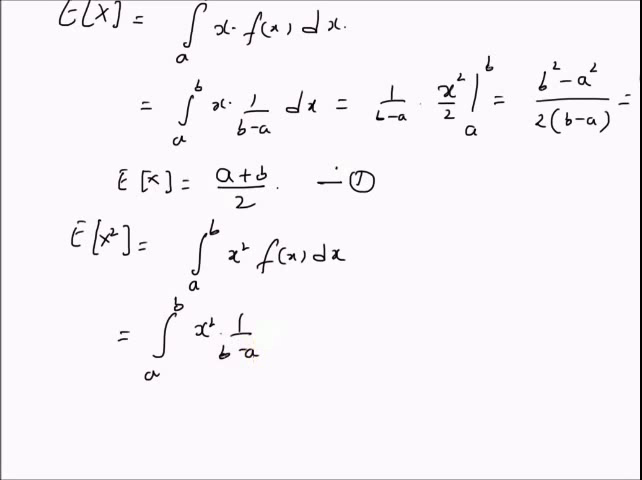 E[X] = ∫ₐ x. f(x) dx.
= ∫ₐᵇ x. 1/(b-a) dx = 1/(b-a) . x²/2 |ₐᵇ = (b²-a²)/(2(b-a)) =
E[x] = (a+b)/2 . — ①
E[x²] = ∫ₐᵇ x² f(x) dx
= ∫ₐᵇ x². 1/(b-a)